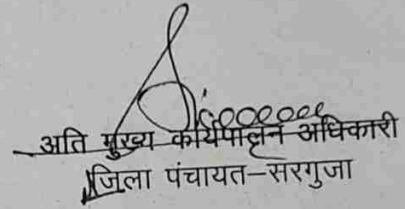 अति मुख्य कार्यपालन अधिकारी
जिला पंचायत–सरगुजा